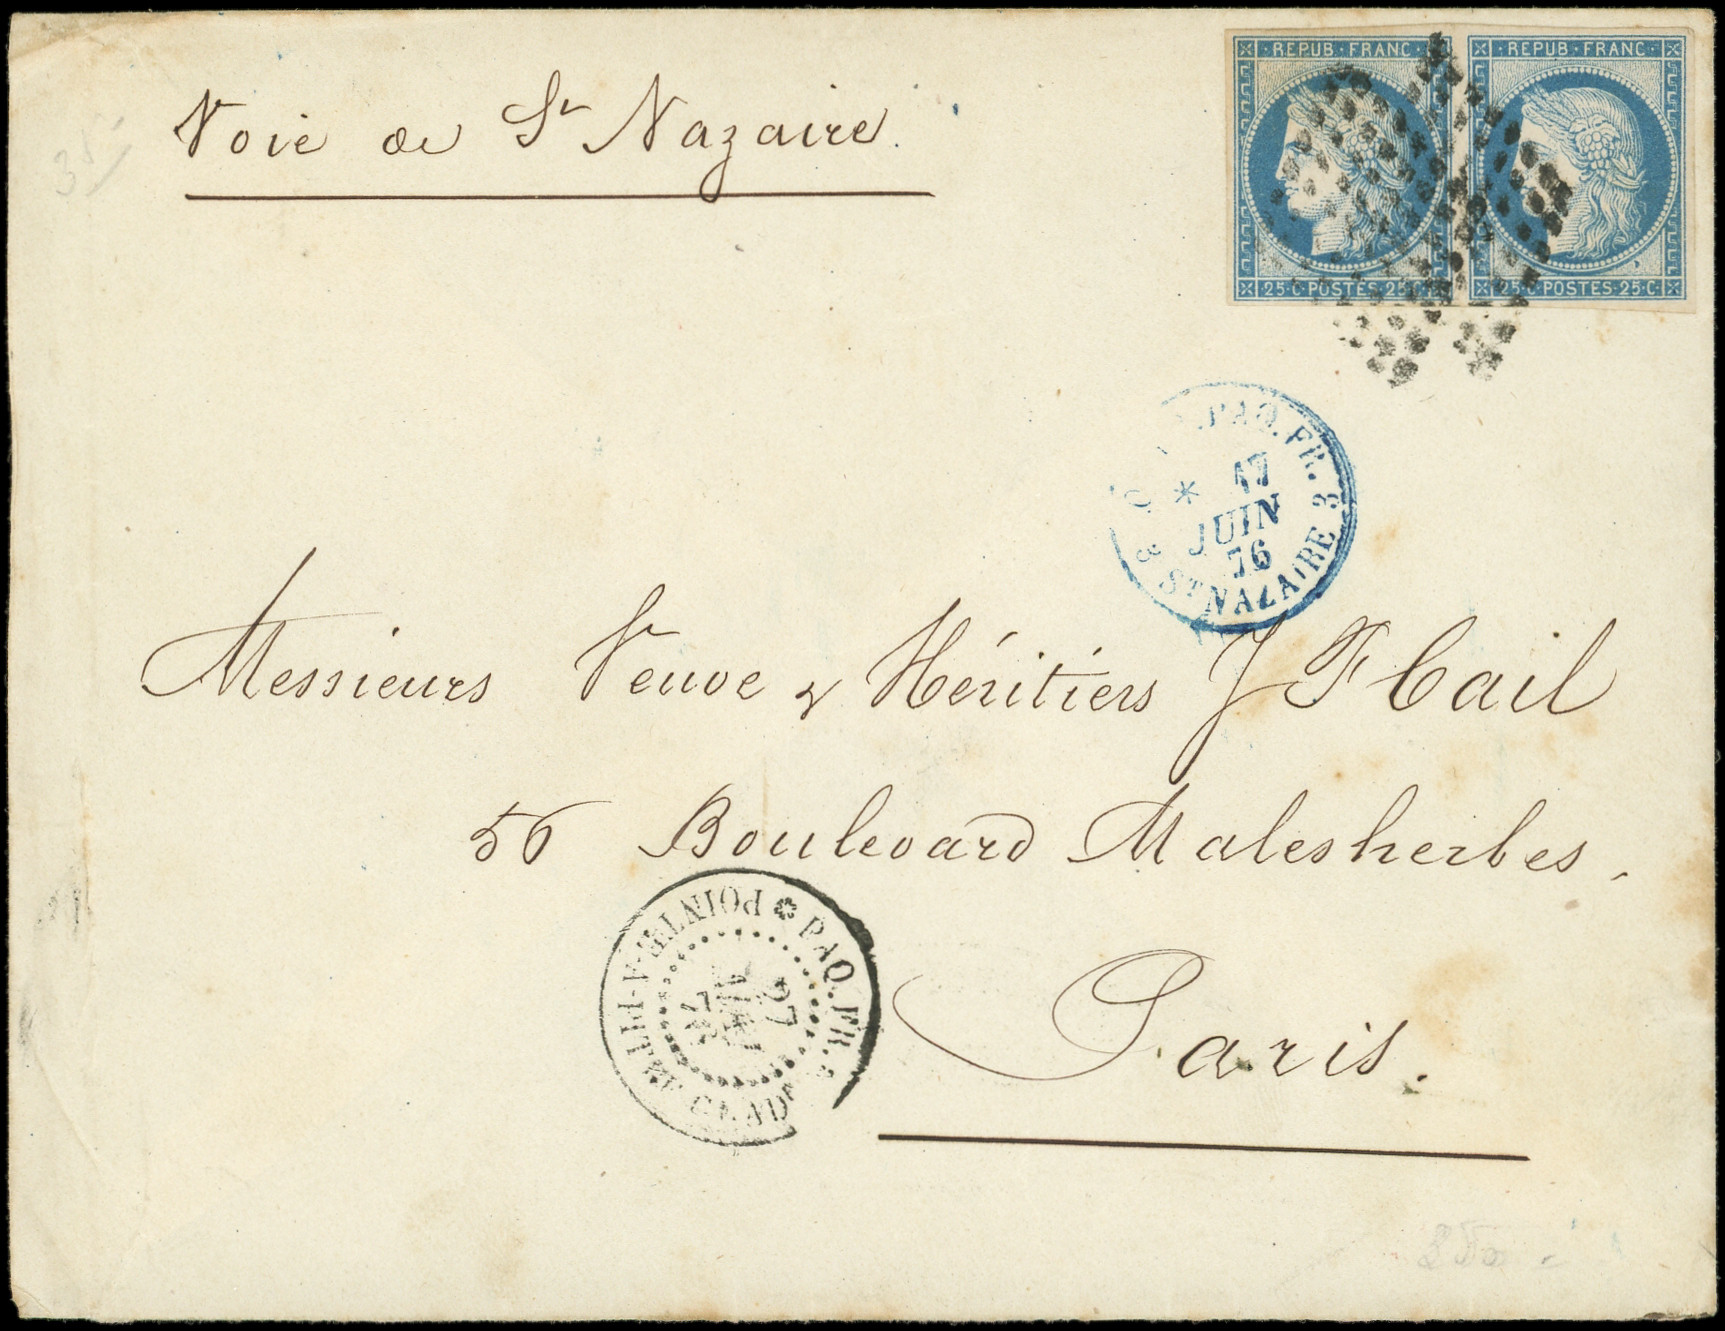 Voie de St Nazaire.
REPUB·FRANC
25·C·POSTES·25·C
REPUB·FRANC
25·C·POSTES·25·C·
PAQ. FR. 3
17
JUIN
76
3 ST NAZAIRE 3
Messieurs Veuve & Héritiers J F Cail
56 Boulevard Malesherbes.
Paris.
POINTE-A-PITRE
PAQ. FR.
27